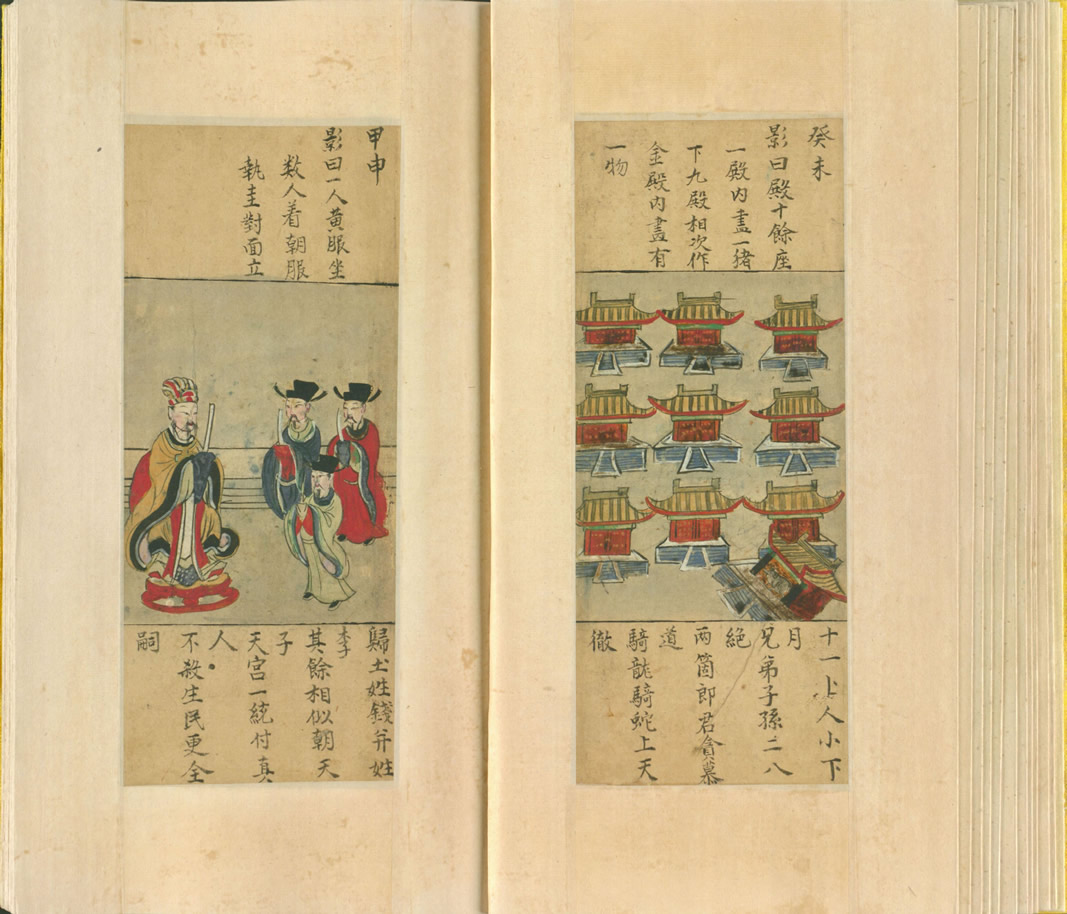 癸未
影曰殿十餘座
一殿内盡一猪
下九殿相次作
金殿内盡有
一物
十一卜人小下
月
兄弟子孫二八
絶
两箇郎君貪慕
道
騎龍騎蛇上天
徹
甲申
影曰一人黄服坐
数人着朝服
執圭對面立
歸土姓錢并姓
李
其餘相似朝天
子
天宮一統付真
人
不殺生民更全
嗣